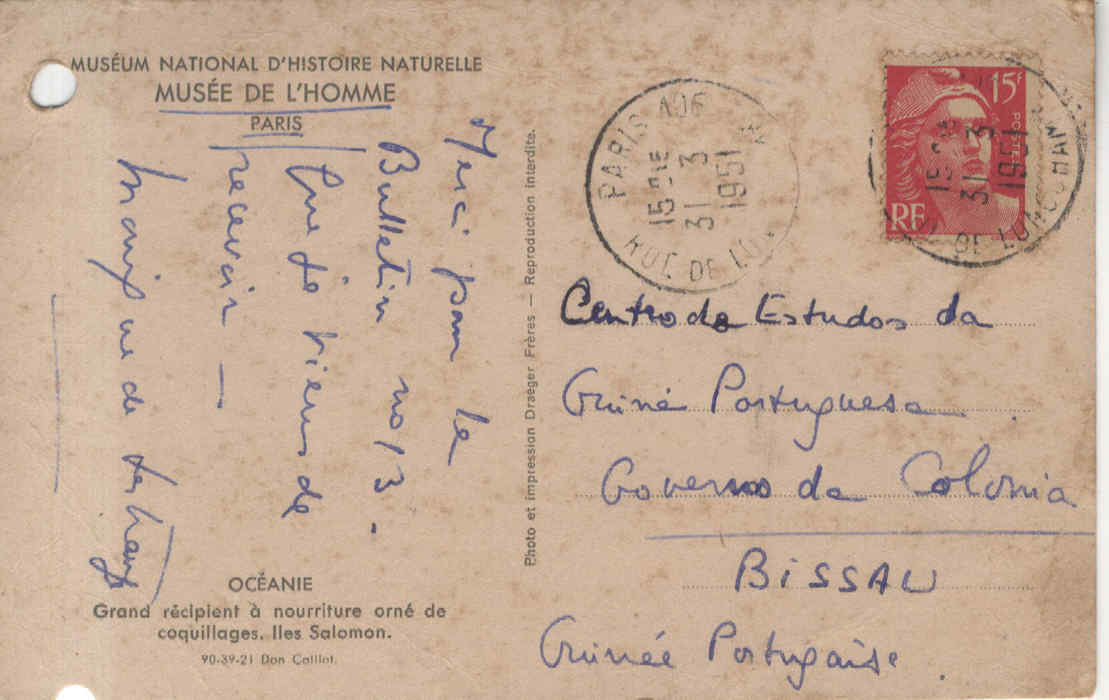 MUSÉUM NATIONAL D'HISTOIRE NATURELLE
MUSÉE DE L'HOMME
PARIS
Merci pour le
Bulletin no 13.
que je viens de
recevoir —
OCÉANIE
Grand récipient à nourriture orné de
coquillages. Iles Salomon.
90-39-21 Don Caillot.
Photo et impression Draeger Frères — Reproduction interdite.
PARIS
15
31 3
1951
RUE DE
15F
POSTES
RF
15
31 3
1951
DE LONGCHAMP
Centro de Estudos da
Guiné Portuguesa
Governo da Colonia
BISSAU
Guinée Portugaise